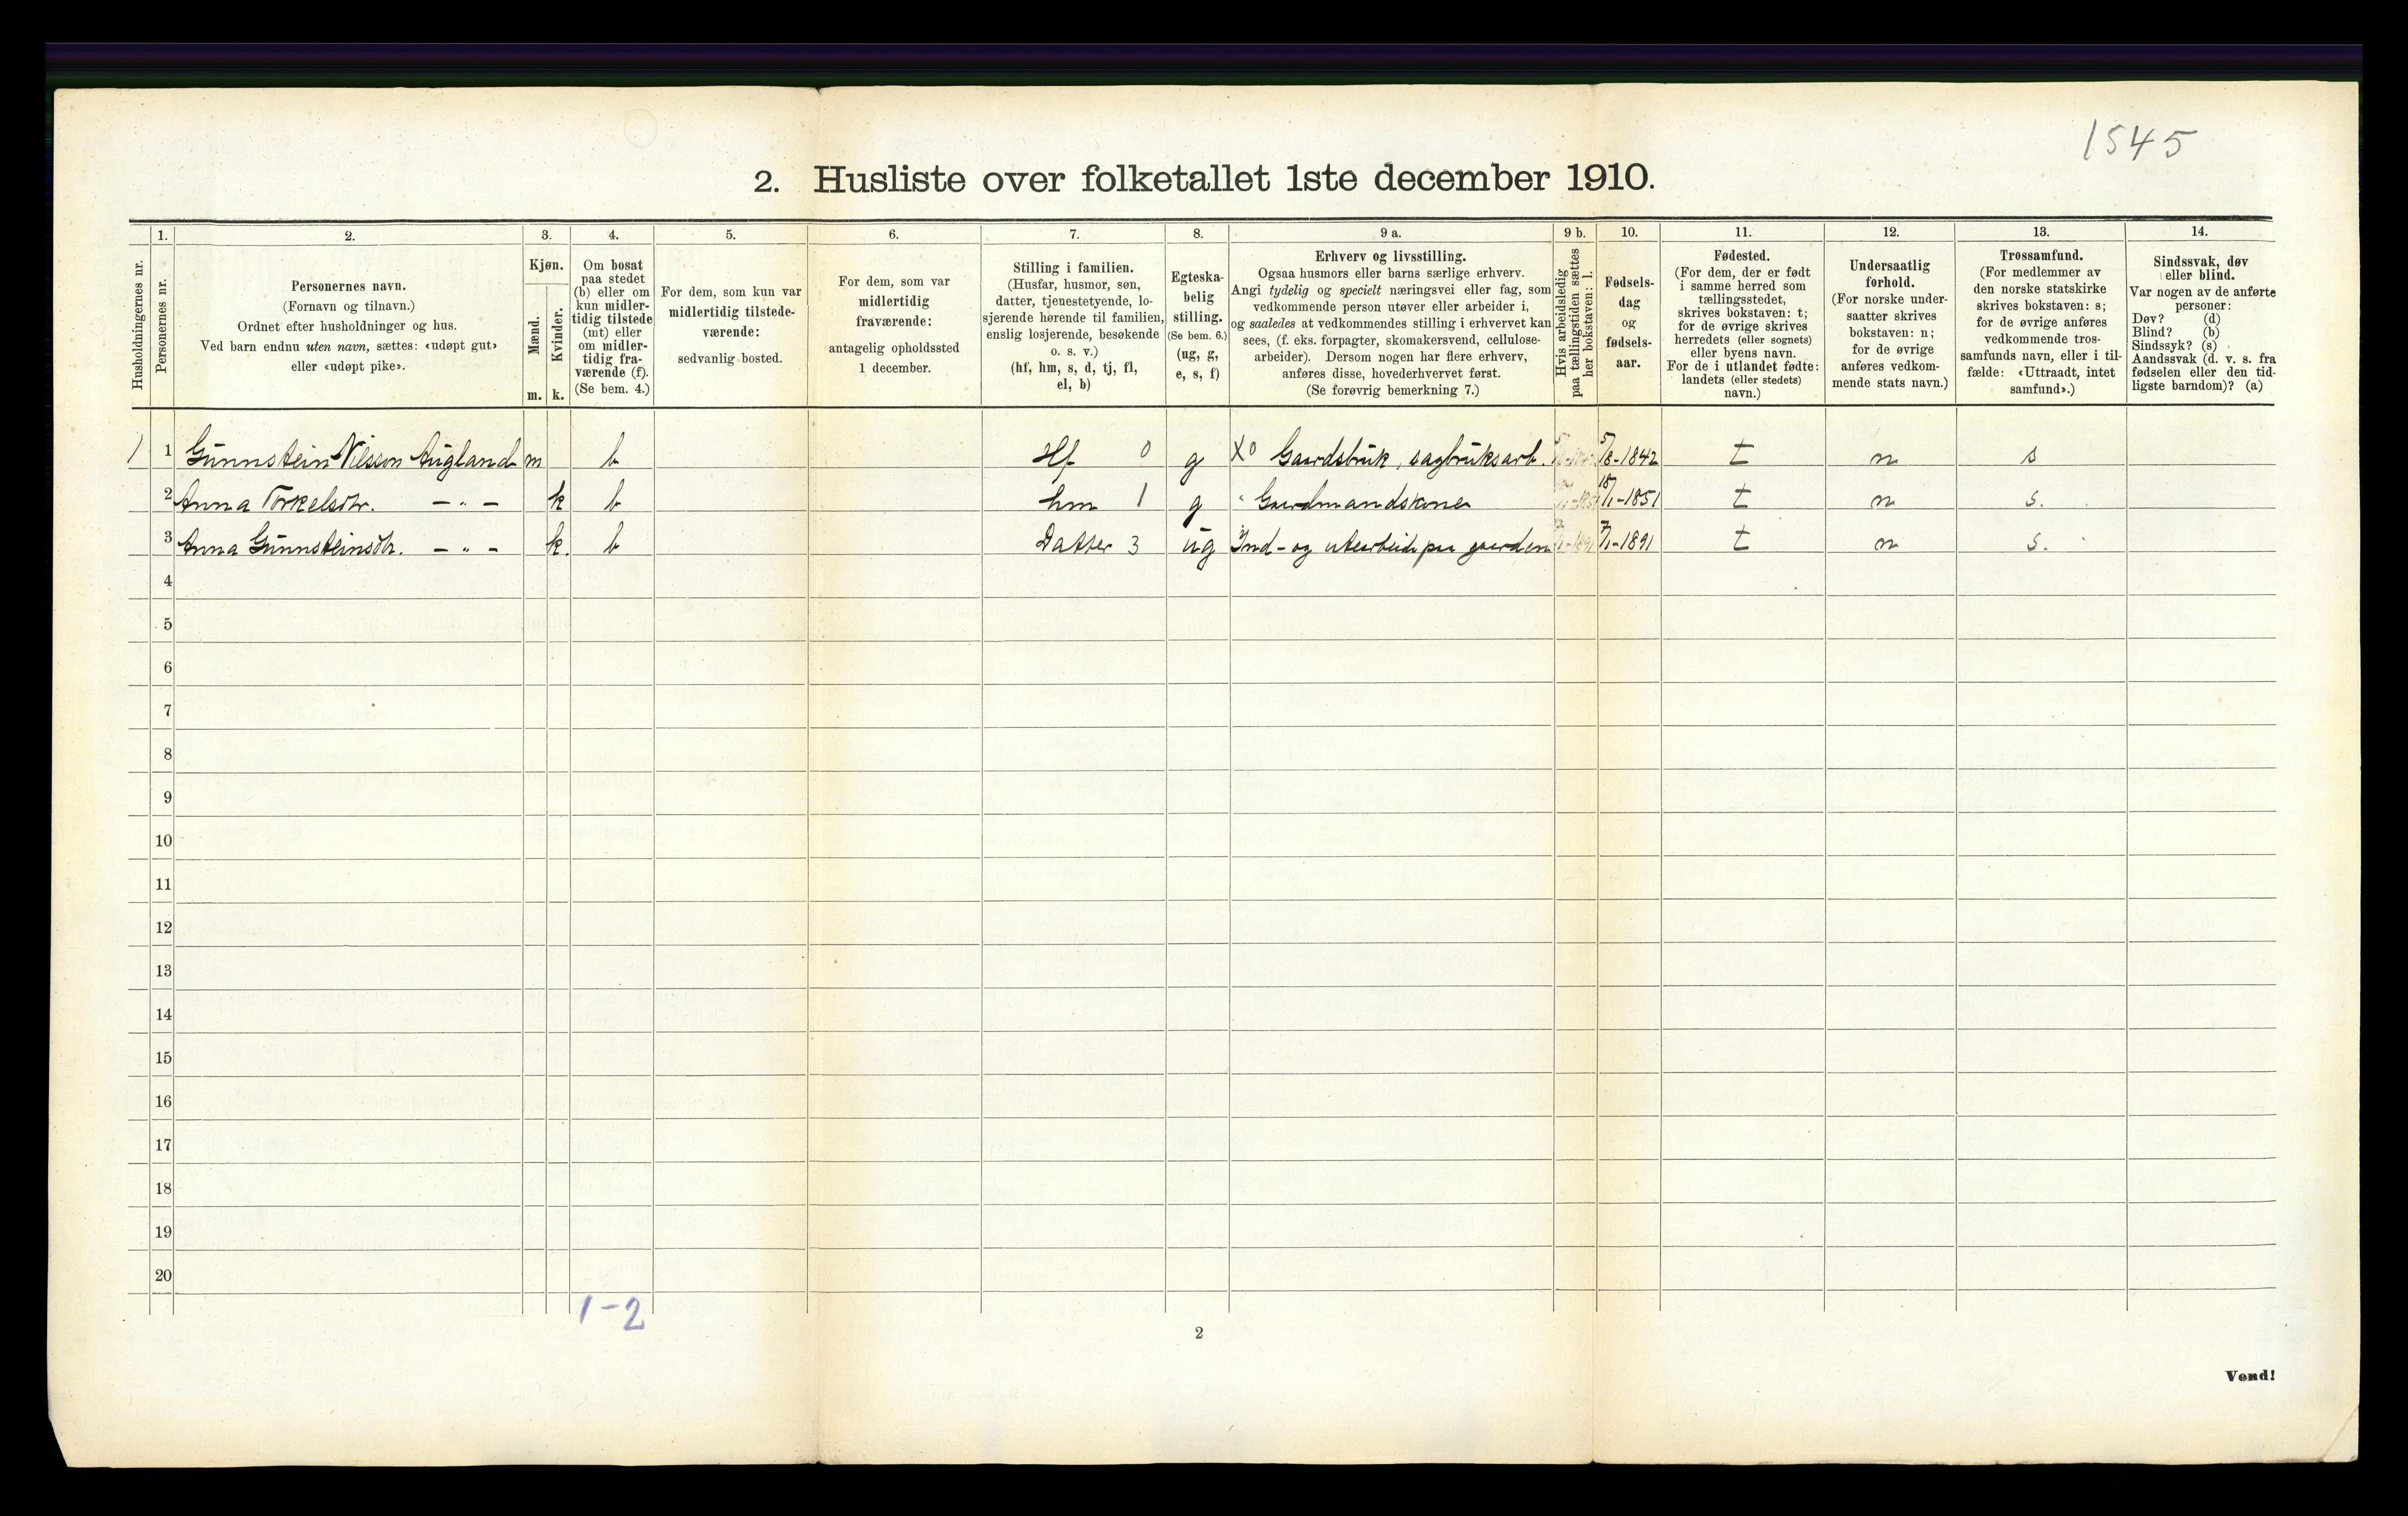 1545
2. Husliste over folketallet 1ste december 1910.
1. 2. 3. 4. 5. 6. 7. 8. 9 a. 9 b. 10. 11. 12. 13. 14.
Husholdningernes nr.
Personernes nr.
Personernes navn.
(Fornavn og tilnavn.)
Ordnet efter husholdninger og hus.
Ved barn endnu uten navn, sættes: «udøpt gut»
eller «udøpt pike».
Kjøn.
Mænd.
Kvinder.
m. k.
Om bosat
paa stedet
(b) eller om
kun midler-
tidig tilstede
(mt) eller
om midler-
tidig fra-
værende (f).
(Se bem. 4.)
For dem, som kun var
midlertidig tilstede-
værende:
sedvanlig bosted.
For dem, som var
midlertidig
fraværende:
antagelig opholdssted
1 december.
Stilling i familien.
(Husfar, husmor, søn,
datter, tjenestetyende, lo-
sjerende hørende til familien,
enslig losjerende, besøkende
o. s. v.)
(hf, hm, s, d, tj, fl,
el, b)
Egteska-
belig
stilling.
(Se bem. 6.)
(ug, g,
e, s, f)
Erhverv og livsstilling.
Ogsaa husmors eller barns særlige erhverv.
Angi tydelig og specielt næringsvei eller fag, som
vedkommende person utøver eller arbeider i,
og saaledes at vedkommendes stilling i erhvervet kan
sees, (f. eks. forpagter, skomakersvend, cellulose-
arbeider). Dersom nogen har flere erhverv,
anføres disse, hovederhvervet først.
(Se forøvrig bemerkning 7.)
Hvis arbeidsledig
paa tællingstiden sættes
her bokstaven: l.
Fødsels-
dag
og
fødsels-
aar.
Fødested.
(For dem, der er født
i samme herred som
tællingsstedet,
skrives bokstaven: t;
for de øvrige skrives
herredets (eller sognets)
eller byens navn.
For de i utlandet fødte:
landets (eller stedets)
navn.)
Undersaatlig
forhold.
(For norske under-
saatter skrives
bokstaven: n;
for de øvrige
anføres vedkom-
mende stats navn.)
Trossamfund.
(For medlemmer av
den norske statskirke
skrives bokstaven: s;
for de øvrige anføres
vedkommende tros-
samfunds navn, eller i til-
fælde: «Uttraadt, intet
samfund».)
Sindssvak, døv
eller blind.
Var nogen av de anførte
personer:
Døv? (d)
Blind? (b)
Sindssyk? (s)
Aandssvak (d. v. s. fra
fødselen eller den tid-
ligste barndom)? (a)
1 1 Gunnstein Nilsson Augland m b Hf 0 g X0 Gaardsbruk, sagbruksarb. 5/8-1842 t n s
2 Anna Torkelsdtr. - " - k b hm 1 g " Gaardmandskone 18/1-1851 t n s.
3 Anna Gunnsteinsdtr. - " - k. b Datter 3 ug Ind- og utearbeide paa gaarden 7/1-1891 t n s.
4
5
6
7
8
9
10
11
12
13
14
15
16
17
18
19
20
1-2
2
Vend!